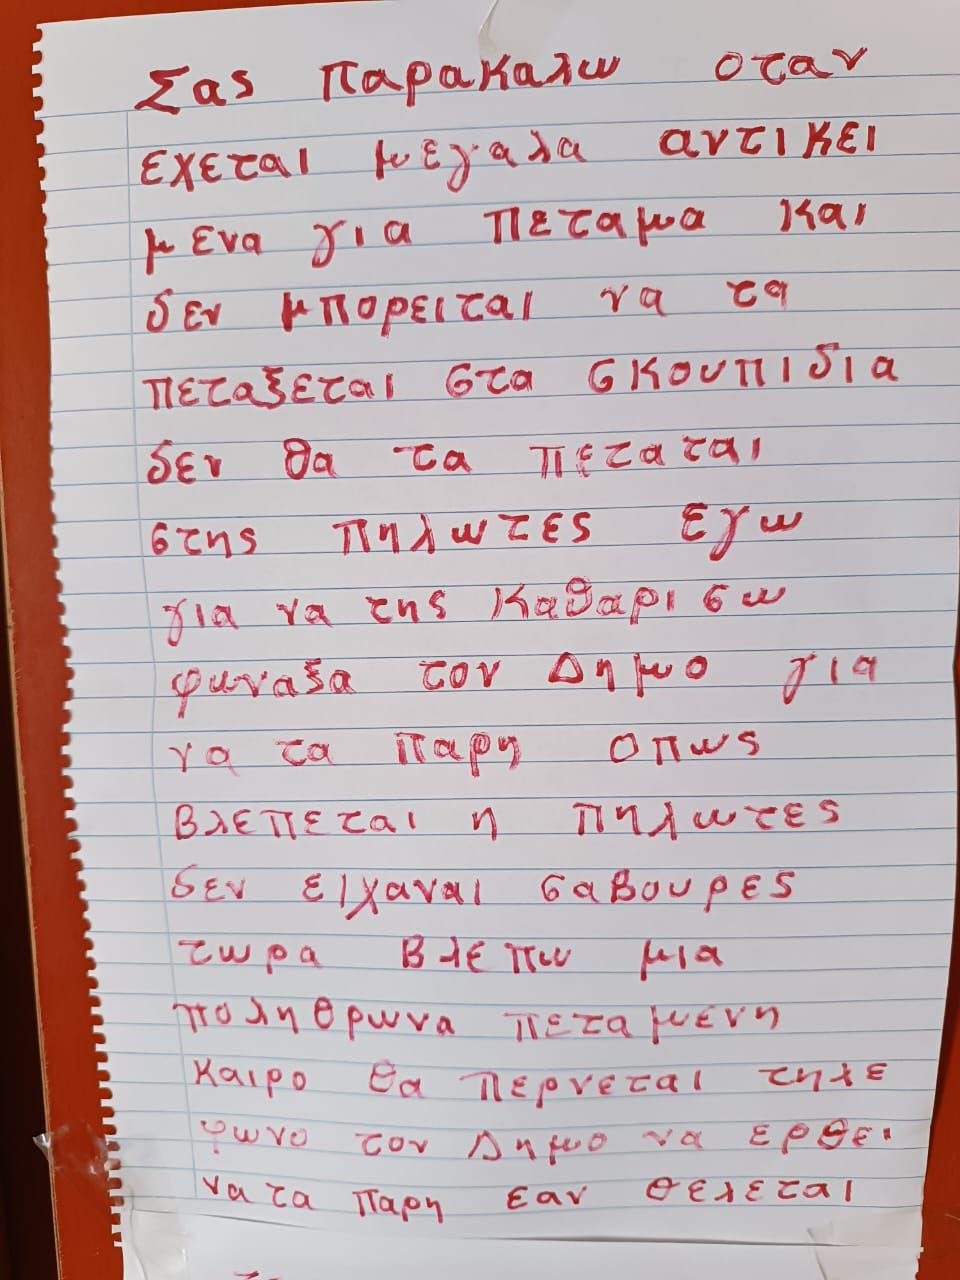 Σας παρακαλω οταν
εχεται μεγαλα αντικει
μενα για πεταμα και
δεν μπορειται να τα
πεταξεται στα σκουπιδια
δεν θα τα πεταται
στης πηλωτες εγω
για να της καθαρισω
φωναξα τον Δημο για
να τα παρη οπως
βλεπεται η πηλωτες
δεν ειχαναι σαβουρες
τωρα βλεπω μια
πολιηθρωνα πεταμενη
καιρο θα περνεται τηλε
φωνο τον Δημο να ερθει
να τα παρη εαν θελεται